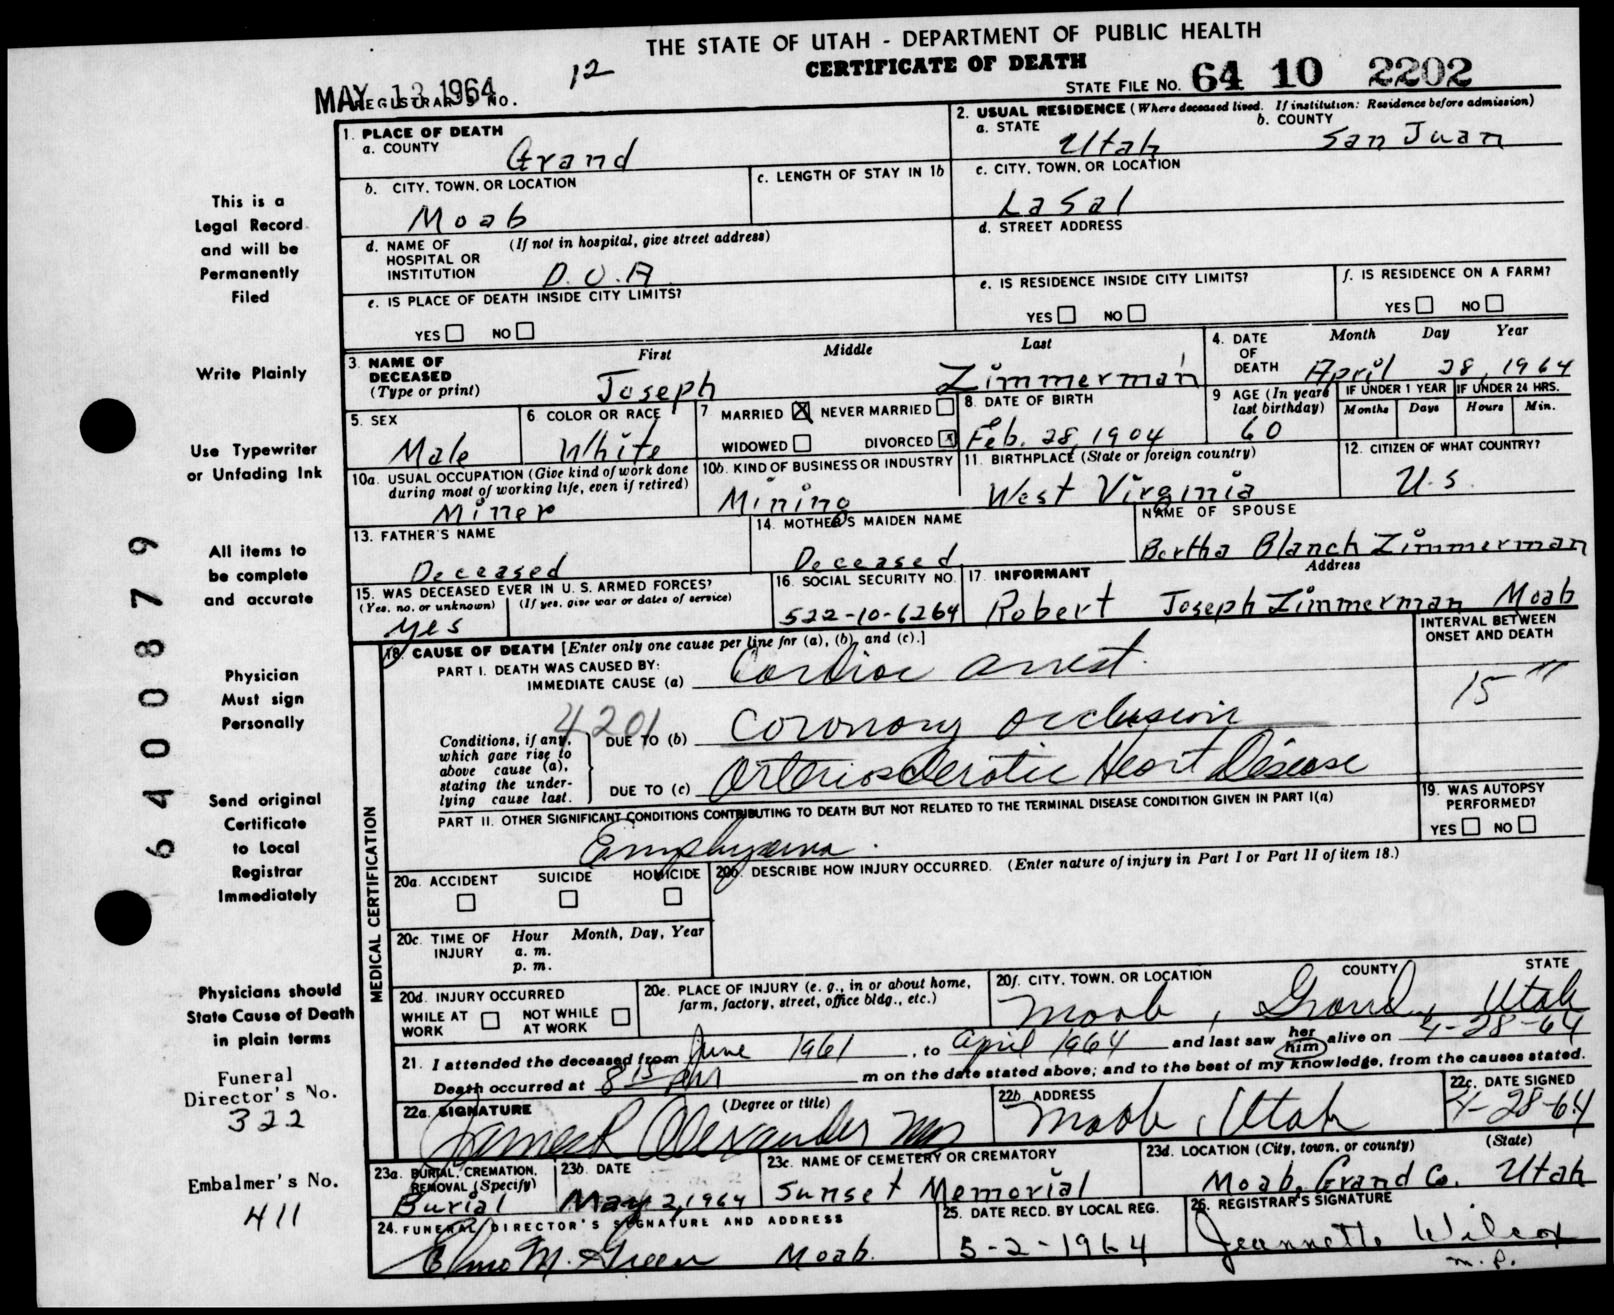 THE STATE OF UTAH - DEPARTMENT OF PUBLIC HEALTH
CERTIFICATE OF DEATH
MAY 13 1964
REGISTRAR'S NO. 12
STATE FILE NO. 64 10 2202
1. PLACE OF DEATH
a. COUNTY
Grand
2. USUAL RESIDENCE (Where deceased lived. If institution: Residence before admission)
a. STATE Utah
b. COUNTY San Juan
b. CITY, TOWN, OR LOCATION
Moab
c. LENGTH OF STAY IN 1b
c. CITY, TOWN OR LOCATION
LaSal
d. NAME OF HOSPITAL OR INSTITUTION (If not in hospital, give street address)
D.O.A
d. STREET ADDRESS
e. IS PLACE OF DEATH INSIDE CITY LIMITS?
YES NO
e. IS RESIDENCE INSIDE CITY LIMITS?
YES NO
f. IS RESIDENCE ON A FARM?
YES NO
3. NAME OF DECEASED (Type or print)
First Middle Last
Joseph Zimmerman
4. DATE OF DEATH
Month Day Year
April 28, 1964
5. SEX
Male
6 COLOR OR RACE
White
7 MARRIED NEVER MARRIED
WIDOWED DIVORCED
8. DATE OF BIRTH
Feb. 28, 1904
9 AGE (In years last birthday)
60
IF UNDER 1 YEAR
Months Days
IF UNDER 24 HRS.
Hours Min.
10a. USUAL OCCUPATION (Give kind of work done during most of working life, even if retired)
Miner
10b. KIND OF BUSINESS OR INDUSTRY
Mining
11. BIRTHPLACE (State or foreign country)
West Virginia
12. CITIZEN OF WHAT COUNTRY?
U.S.
13. FATHER'S NAME
Deceased
14. MOTHER'S MAIDEN NAME
Deceased
NAME OF SPOUSE
Bertha Blanch Zimmerman
15. WAS DECEASED EVER IN U.S. ARMED FORCES?
(Yes, no, or unknown) (If yes, give war or dates of service)
yes
16. SOCIAL SECURITY NO.
522-10-6264
17. INFORMANT Address
Robert Joseph Zimmerman Moab
18. CAUSE OF DEATH [Enter only one cause per line for (a), (b), and (c).]
PART I. DEATH WAS CAUSED BY:
IMMEDIATE CAUSE (a) Cardiac arrest.
INTERVAL BETWEEN ONSET AND DEATH
15"
4201
Conditions, if any, which gave rise to above cause (a), stating the underlying cause last.
DUE TO (b) Coronary occlusion
DUE TO (c) Arteriosclerotic Heart Disease
PART II. OTHER SIGNIFICANT CONDITIONS CONTRIBUTING TO DEATH BUT NOT RELATED TO THE TERMINAL DISEASE CONDITION GIVEN IN PART I(a)
Emphysema.
19. WAS AUTOPSY PERFORMED?
YES NO
MEDICAL CERTIFICATION
20a. ACCIDENT SUICIDE HOMICIDE
20b. DESCRIBE HOW INJURY OCCURRED. (Enter nature of injury in Part I or Part II of item 18.)
20c. TIME OF INJURY
Hour Month, Day, Year
a. m.
p. m.
20d. INJURY OCCURRED
WHILE AT WORK NOT WHILE AT WORK
20e. PLACE OF INJURY (e. g., in or about home, farm, factory, street, office bldg., etc.)
20f. CITY, TOWN, OR LOCATION COUNTY STATE
Moab, Grand, Utah
21. I attended the deceased from June 1961, to April 1964 and last saw her him alive on 4-28-64
Death occurred at 8 15 PM m on the date stated above; and to the best of my knowledge, from the causes stated.
22a. SIGNATURE (Degree or title)
James R Alexander MD
22b. ADDRESS
Moab, Utah
22c. DATE SIGNED
4-28-64
23a. BURIAL, CREMATION, REMOVAL (Specify)
Burial
23b. DATE
May 2, 1964
23c. NAME OF CEMETERY OR CREMATORY
Sunset Memorial
23d. LOCATION (City, town, or county) (State)
Moab, Grand Co. Utah
24. FUNERAL DIRECTOR'S SIGNATURE AND ADDRESS
Elmo M. Green Moab.
25. DATE RECD. BY LOCAL REG.
5-2-1964
26. REGISTRAR'S SIGNATURE
Jeannette Wilcox
This is a
Legal Record
and will be
Permanently
Filed
Write Plainly
Use Typewriter
or Unfading Ink
All items to
be complete
and accurate
Physician
Must sign
Personally
Send original
Certificate
to Local
Registrar
Immediately
Physicians should
State Cause of Death
in plain terms
Funeral
Director's No.
322
Embalmer's No.
411
6400879